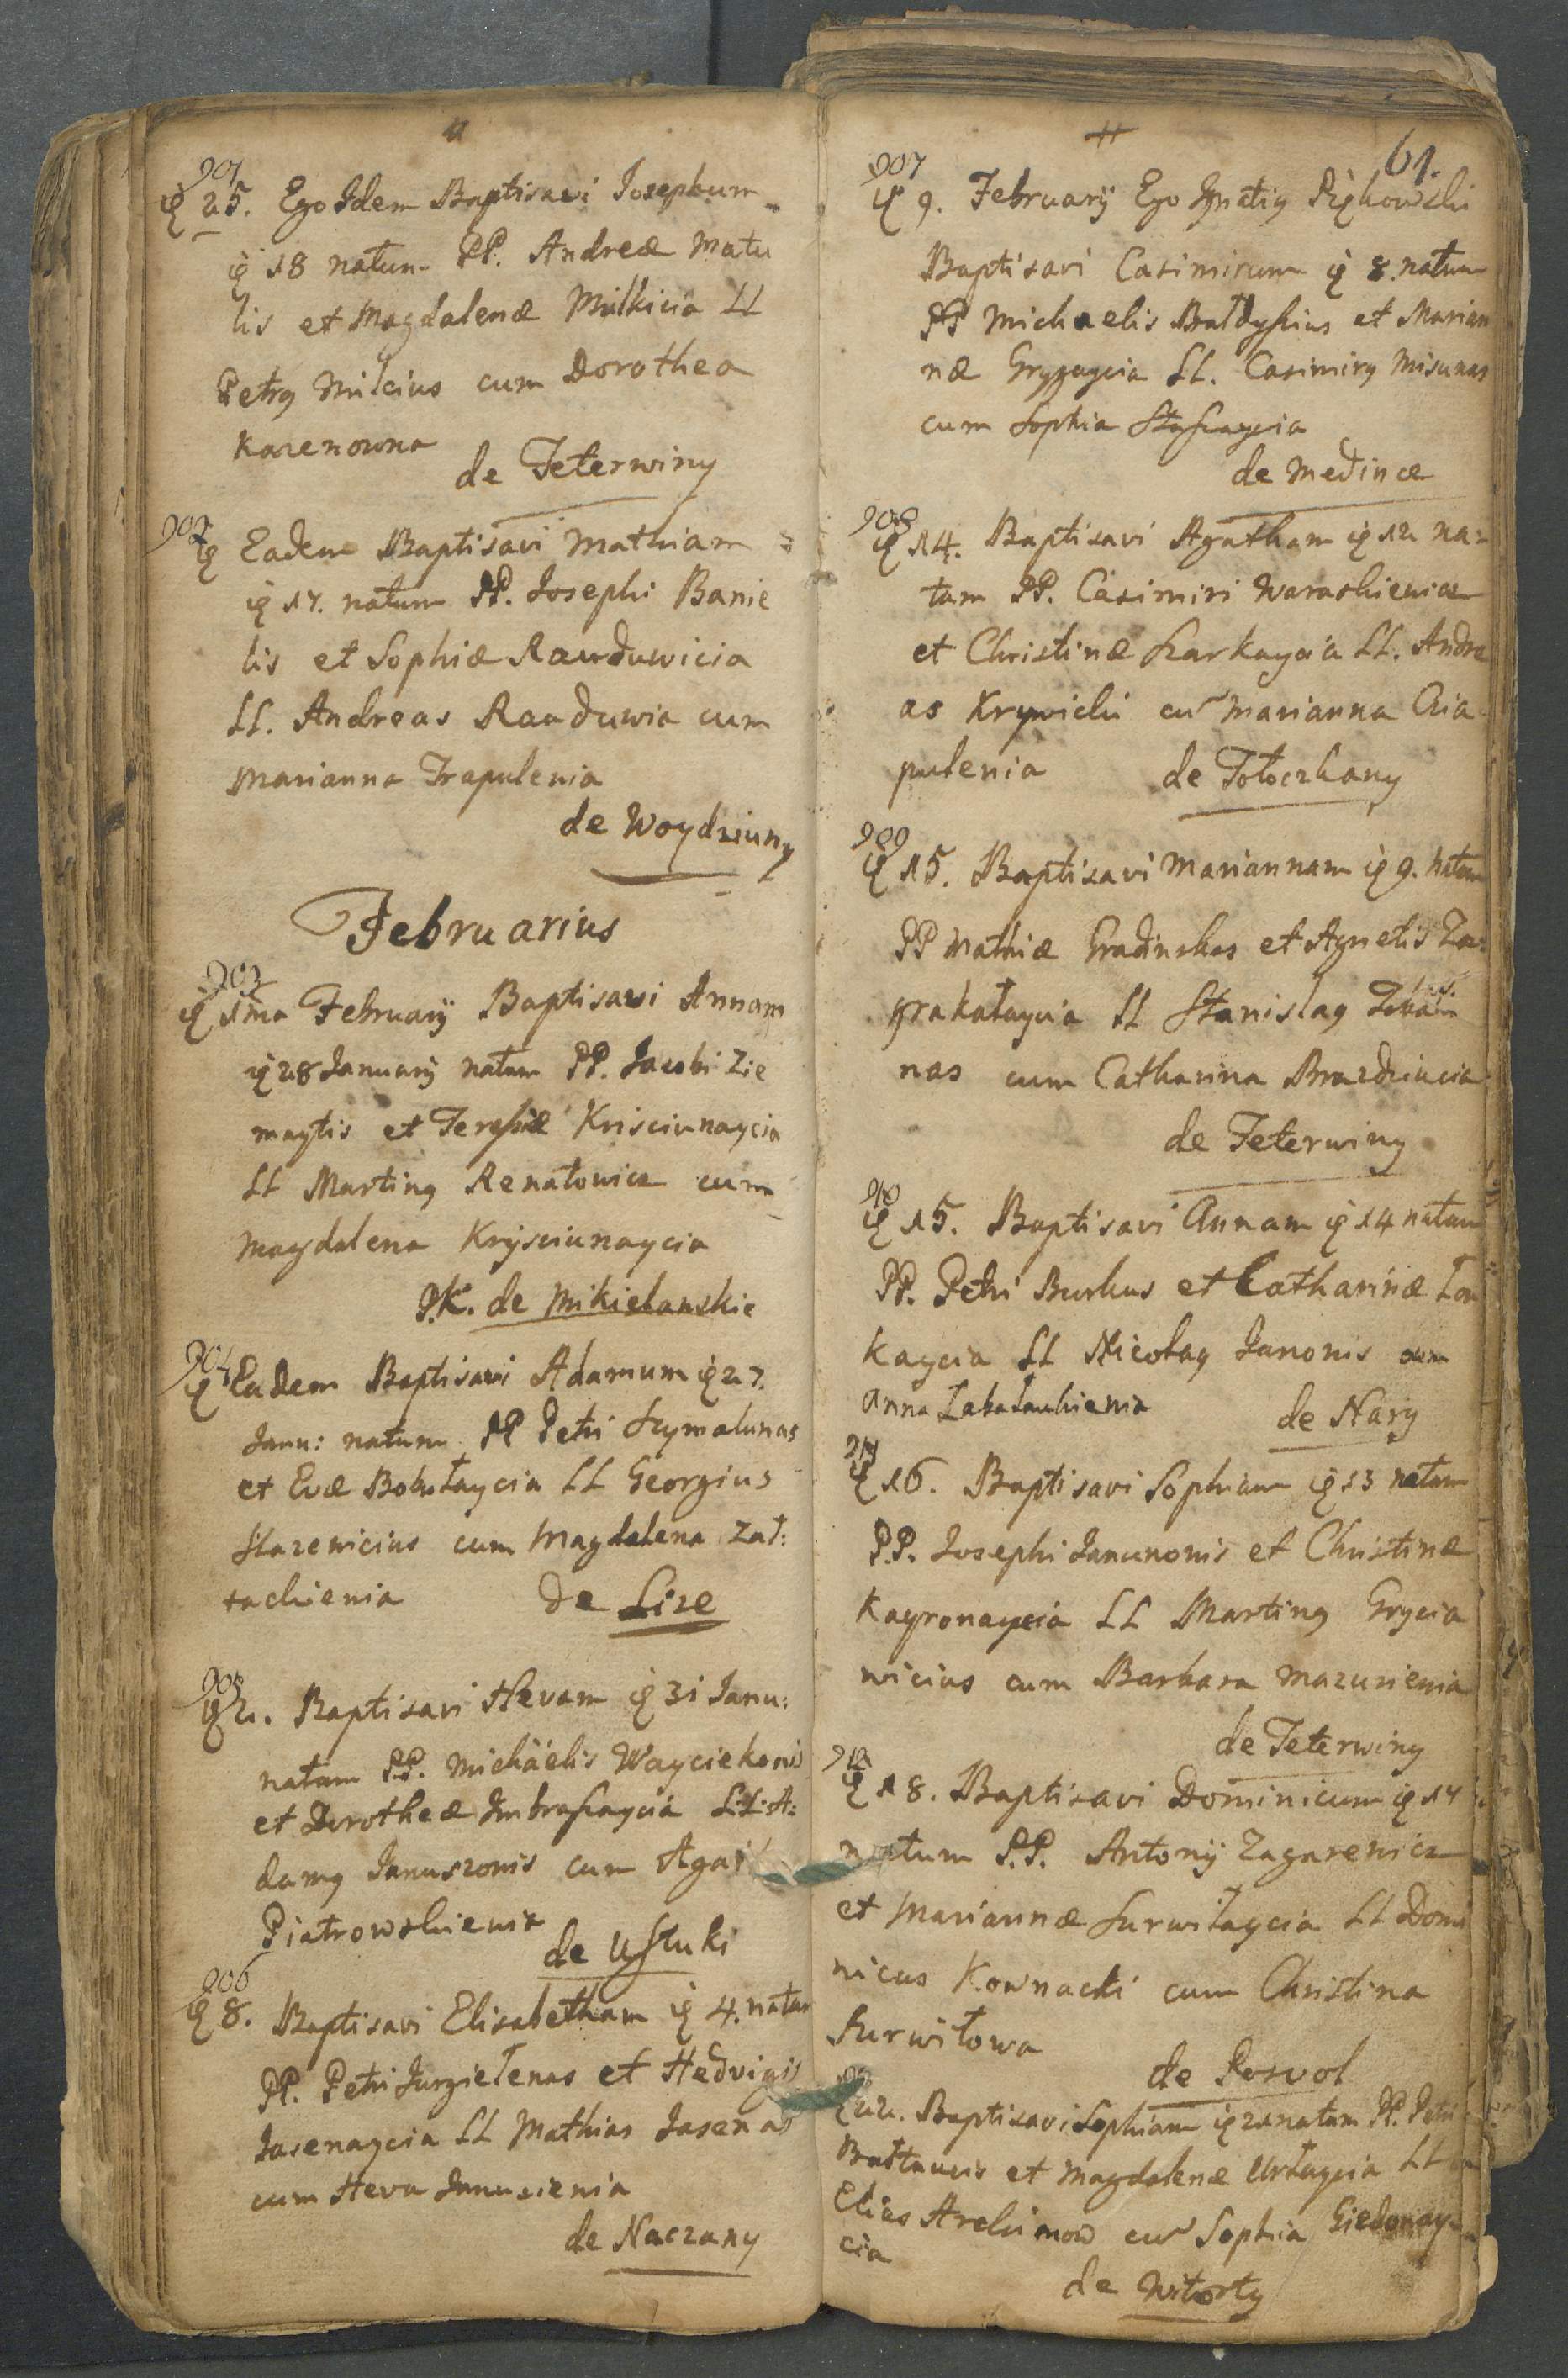 901
25. Ego Idem Baptisavi Josephum
18 natum PP. Andreæ Matu
lis et Magdalenæ Milkicia LL
Petrq Milcius cum Dorothea
Kazenowna
de Teterwiny
902
Eadem Baptisavi Mathiam
17. natum PP. Josephi Banie
lis et Sophiæ Rauduwicia
LL. Andreas Rauduwia cum
Marianna Trapulenia
de Woydziuny
Februarius
903
1ma Februarij Baptisavi Annam
28 Januarij natam PP. Jacobi Zie
maytis et Teresiæ Krisciunaycia
LL Martinq Renatowicz cum
Magdalena Krysciunaycia
P.K. de Mikielanskie
904
Eadem Baptisavi Adamum 27.
Janu: natum PP Petri Szymalunas
et Evæ Bobutaycia LL Georgius
Starewicius cum Magdalena Zat:
rachienia
de Lize
905
2. Baptisavi Hevam 31 Janu:
natam P.P. Michäelis Wayciekonis
et Dorotheæ Imbrasaycia L:L: A:
damq Januszonis cum Aga
Piatrowskienia
de Ustuki
906
8. Baptisavi Elisabetham 4. natam
PP. Petri Jurgielenas et Hedvigis
Jasenaycia LL Mathias Jasenas
cum Heva Janusienia
de Naczany
61.
907
9. Februarij Ego Ignatiq Piękowski
Baptisavi Casimirum 8. natum
PP Michaelis Bałdyszius et Marian
næ Gryzaycia LL. Casimirq Misunas
cum Sophia
de Medinæ
908
14. Baptisavi Agatham 12 na:
tam PP. Casimiri Waraskiewicz
et Christinæ Karkaycia LL. Andre
as Krywicki cu Marianna Cia
pulenia
de Tołoczkany
909
15. Baptisavi Mariannam 9. natam
PP Mathiæ Gradinskas et Agnetis Za:
grakałaycia LL Stanislaq
nas cum Catharina Brazdziucia
de Teterwiny
910
15. Baptisavi Annam 14 natam
PP. Petri Burkus et Catharinæ Lau
kaycia LL Nicolaq Janonis cum
Anna Labatauskienia
de Nary
911
16. Baptisavi Sophiam 13 natam
P.P. Josephi Janunonis et Christinæ
Kayronaycia LL Martinq Grycia
wicius cum Barbara Mazurienia
de Teterwiny
912
18. Baptisavi Dominicum 17
natum P.P. Antonij Zagarewicz
et Mariannæ Surwiłaycia LL Domi
nicus Kownacki cum Christina
Surwiłowa
de Posvol
913
22. Baptisavi Sophiam 21 natam PP. Petri
Bałtaucis et Magdalenæ Urłaycia LL
Elias Archimow cu Sophia Giedonay
cia
de Witorty